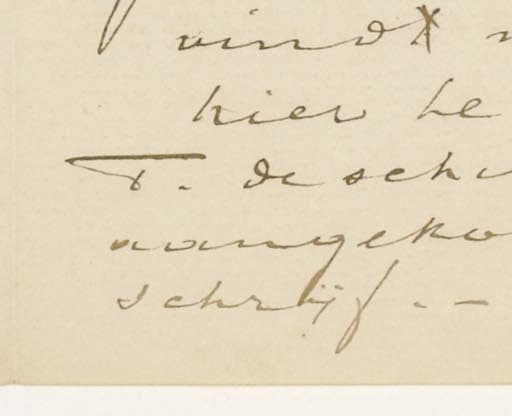 vindt
hier be
T. de sch
aangeko
schrijf. –